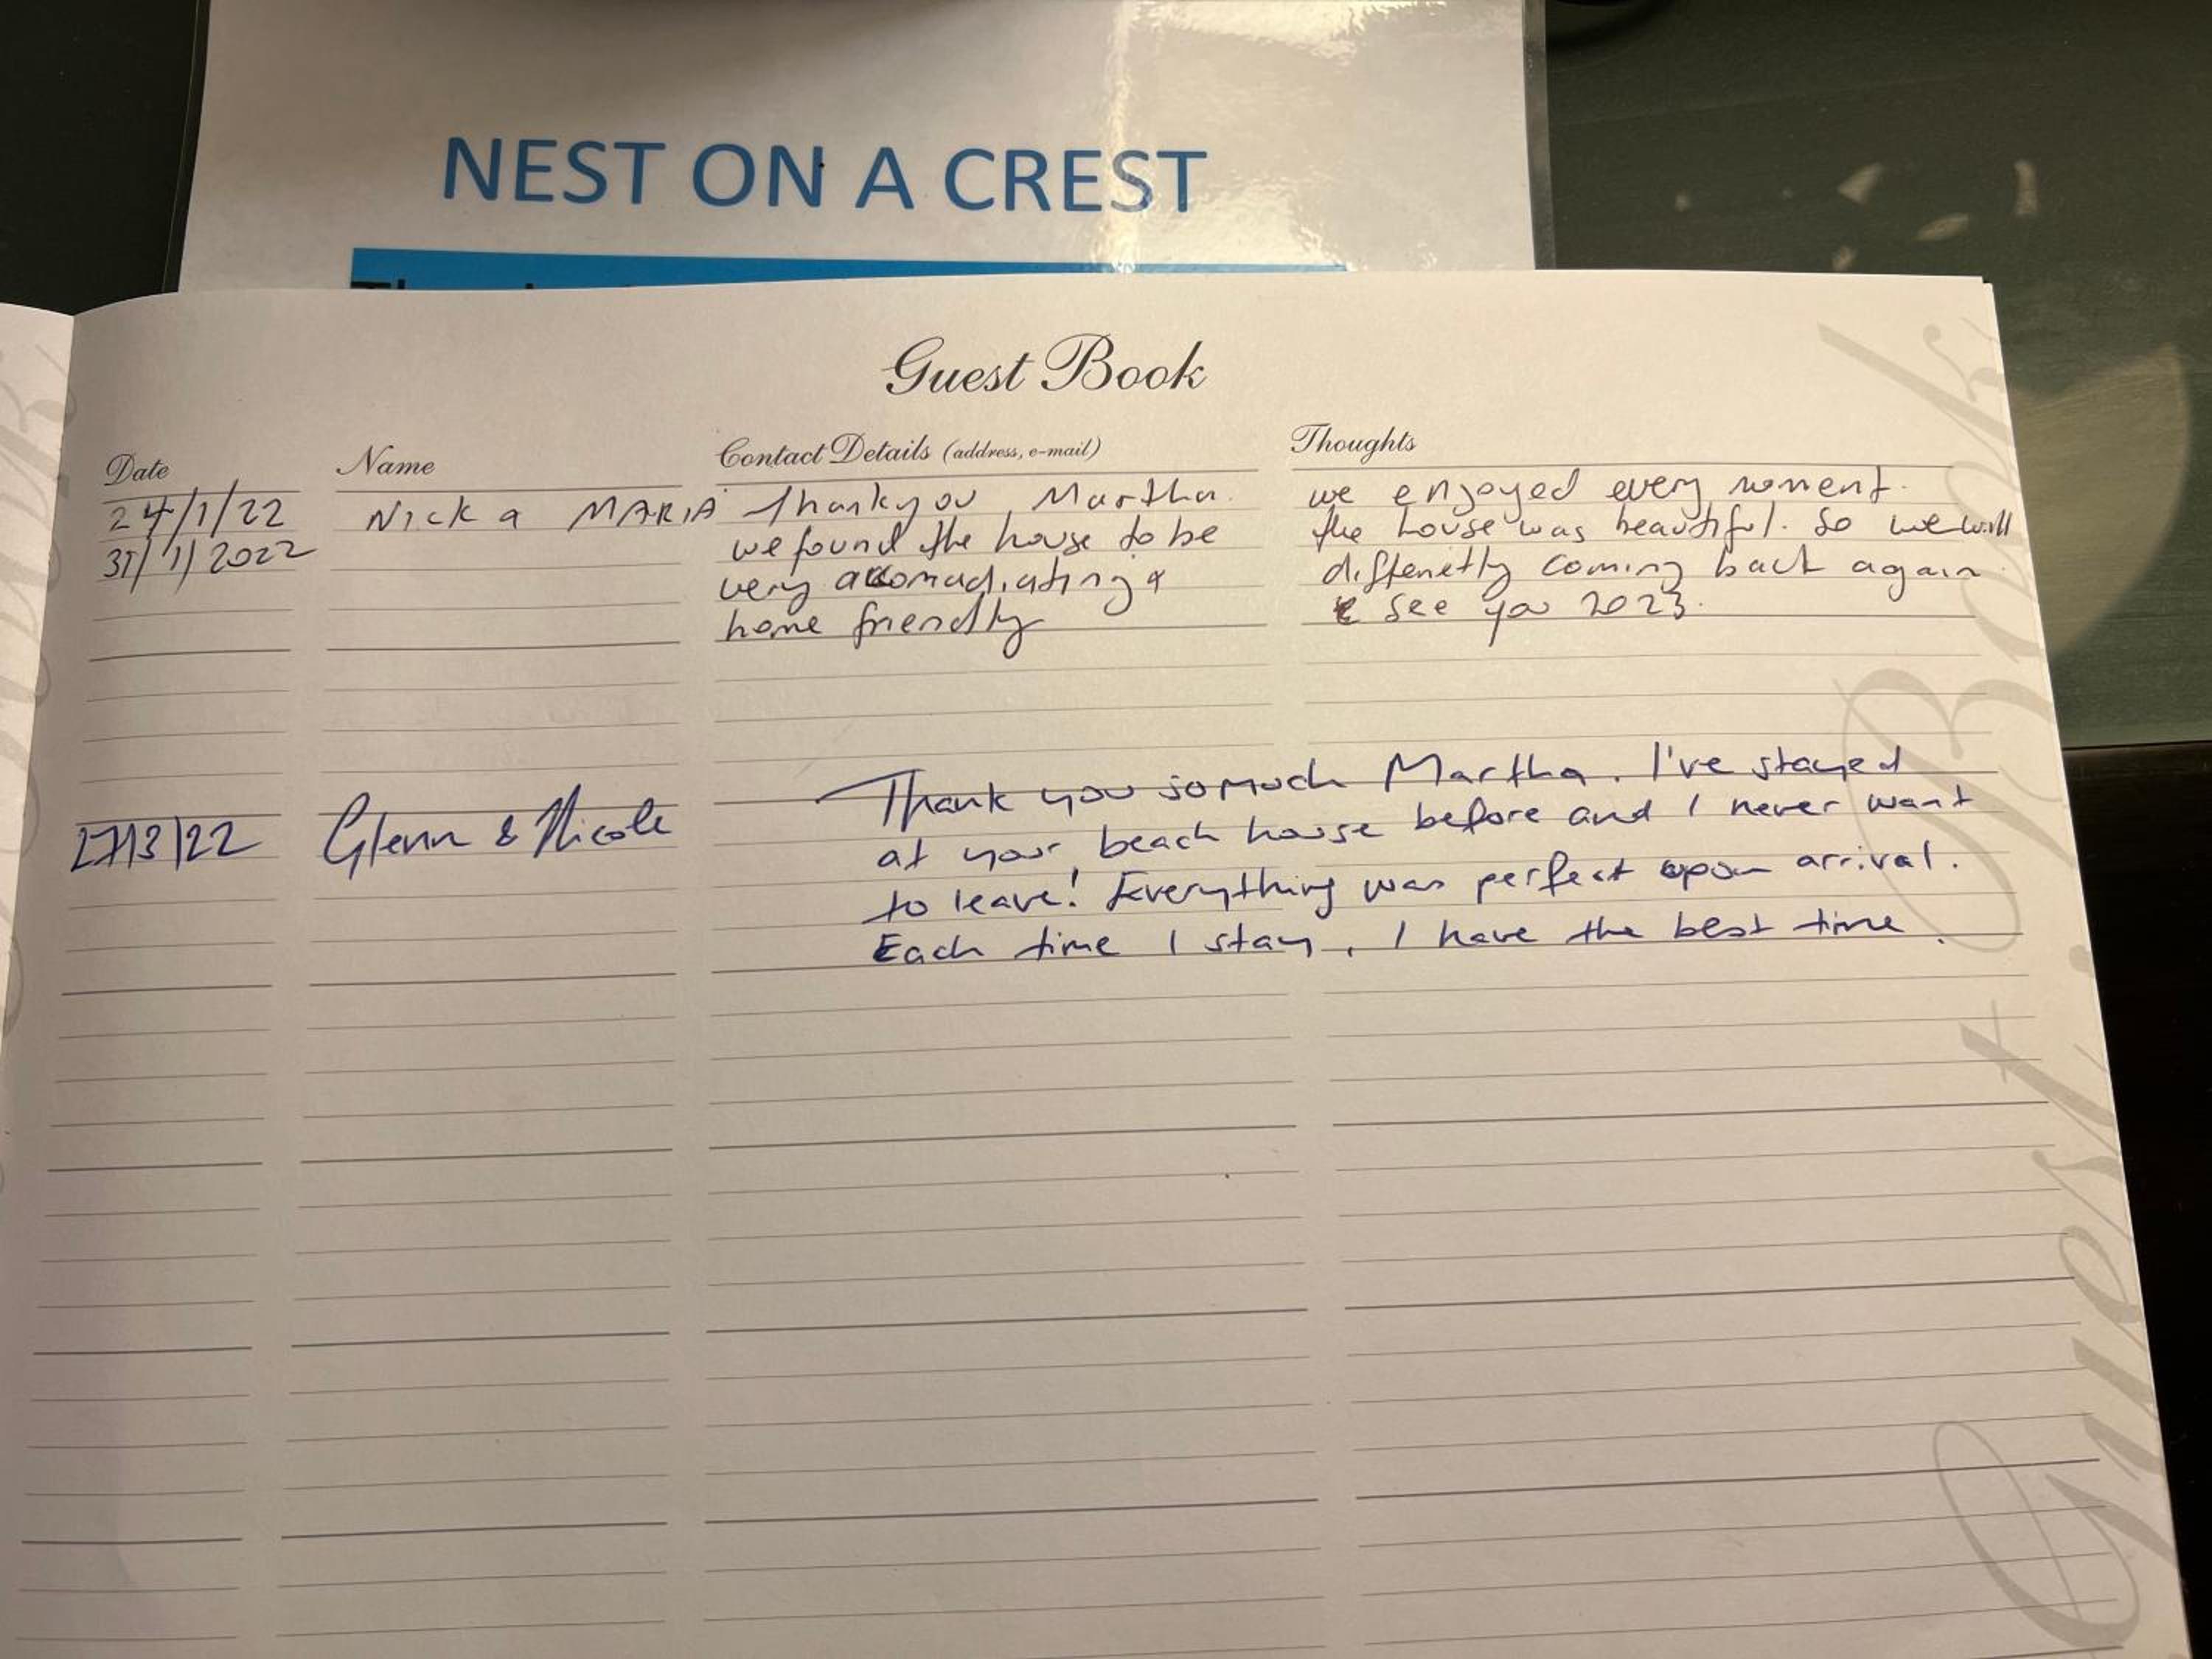 NEST ON A CREST
Guest Book
Date Name Contact Details (address, e-mail) Thoughts
24/1/22 Nick & MARIA Thankyou Martha.
31/1/2022 we found the house to be
very accomadiating &
home friendly
we enjoyed every moment.
the house was beautiful. So we will
diffenetly coming back again
& see you 2023.
27/3/22 Glenn & Nicole
Thank you so much Martha. I've stayed
at your beach house before and I never want
to leave! Everything was perfect upon arrival.
Each time I stay, I have the best time.
Guest Book